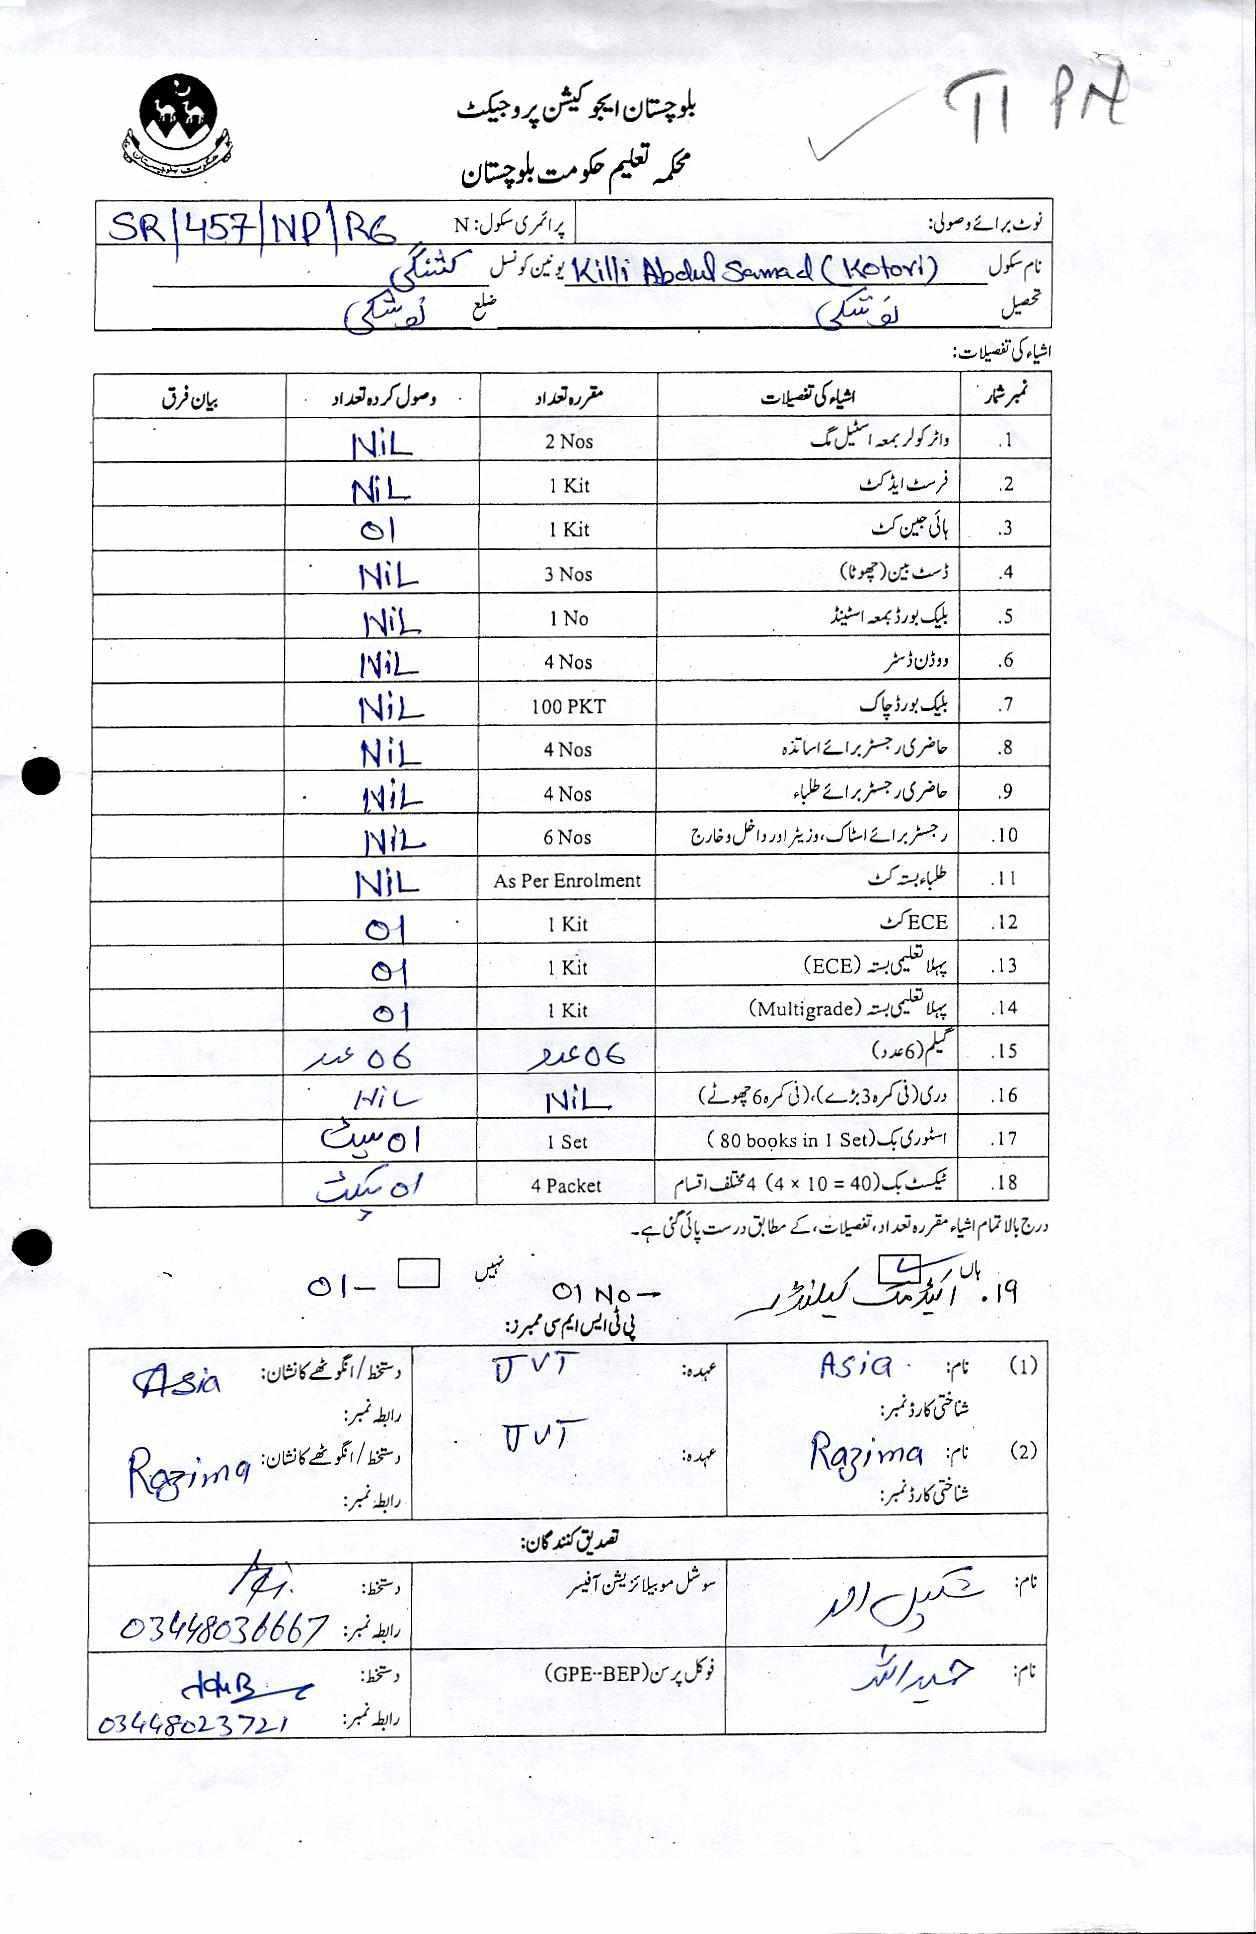 TI PN
بلوچستان ایجوکیشن پروجیکٹ
محکمہ تعلیم حکومت بلوچستان
حکومت بلوچستان
نوٹ برائے وصولی: پرائمری سکول: N SR/457/NP/RG
نام سکول Killi Abdul Samad (Kotori) یونین کونسل کشنگی
تحصیل نوشکی ضلع نوشکی
اشیاء کی تفصیلات:
نمبر شمار اشیاء کی تفصیلات مقررہ تعداد وصول کردہ تعداد بیان فرق
1. واٹر کولر بمعہ اسٹیل مگ 2 Nos NiL
2. فرسٹ ایڈ کٹ 1 Kit NiL
3. ہائی جین کٹ 1 Kit 01
4. ڈسٹ بین (چھوٹا) 3 Nos NiL
5. بلیک بورڈ بمعہ اسٹینڈ 1 No NiL
6. ووڈن ڈسٹر 4 Nos NiL
7. بلیک بورڈ چاک 100 PKT NiL
8. حاضری رجسٹر برائے اساتذہ 4 Nos NiL
9. حاضری رجسٹر برائے طلباء 4 Nos NiL
10. رجسٹر برائے اسٹاک، وزیٹر اور داخل و خارج 6 Nos NiL
11. طلباء بستہ کٹ As Per Enrolment NiL
12. ECE کٹ 1 Kit 01
13. پہلا تعلیمی بستہ (ECE) 1 Kit 01
14. پہلا تعلیمی بستہ (Multigrade) 1 Kit 01
15. گلیم (6 عدد) 06 عدد 06 عدد
16. دری (فی کمرہ 3 بڑے)، (فی کمرہ 6 چھوٹے) NiL NiL
17. اسٹوری بک (80 books in 1 Set) 1 Set 01 سیٹ
18. ٹیکسٹ بک (4 × 10 = 40) 4 مختلف اقسام 4 Packet 01 پیکٹ
درج بالا تمام اشیاء مقررہ تعداد، تفصیلات، کے مطابق درست پائی گئی ہے۔
ہاں نہیں
19. اکیڈمک کیلنڈر 01 No 01
پی ٹی ایس ایم سی ممبرز:
(1) نام: Asia عہدہ: JVT دستخط/انگوٹھے کا نشان: Asia
شناختی کارڈ نمبر: رابطہ نمبر:
(2) نام: Razima عہدہ: JVT دستخط/انگوٹھے کا نشان: Razima
شناختی کارڈ نمبر: رابطہ نمبر:
تصدیق کنندگان:
نام: شکیل احمد سوشل موبیلائزیشن آفیسر دستخط:
رابطہ نمبر: 03448036667
نام: حمید اللہ فوکل پرسن (GPE--BEP) دستخط:
رابطہ نمبر: 03448023721